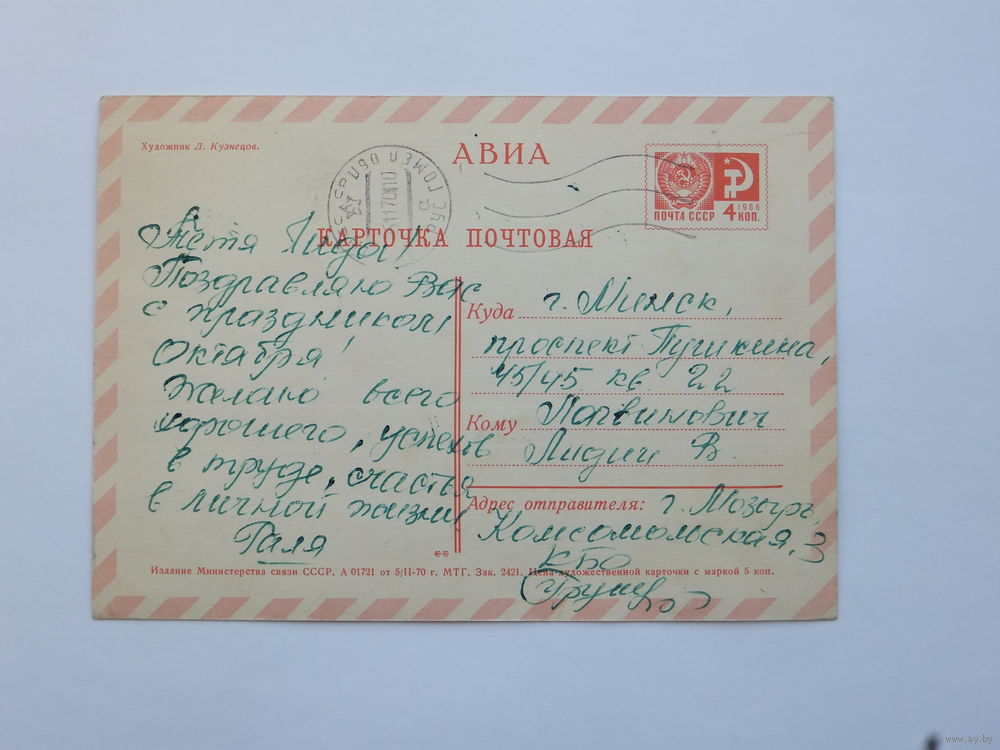 Художник Л. Кузнецов.
АВИА
КАРТОЧКА ПОЧТОВАЯ
ПОЧТА СССР
1966
4 КОП.
тётя Лида!
Поздравляю Вас
с праздником
Октября!
Желаю всего
хорошего, успехов
в труде, счастья
в личной жизни
Галя
Куда г. Минск,
проспект Пушкина,
45/45 кв. 22
Кому
Лидии В.
Адрес отправителя: г. Мозырь,
Комсомольская, 3
КБО
**
Издание Министерства связи СССР. А 01721 от 5/II-70 г. МТГ. Зак. 2421. Цена художественной карточки с маркой 5 коп.
www.ay.by